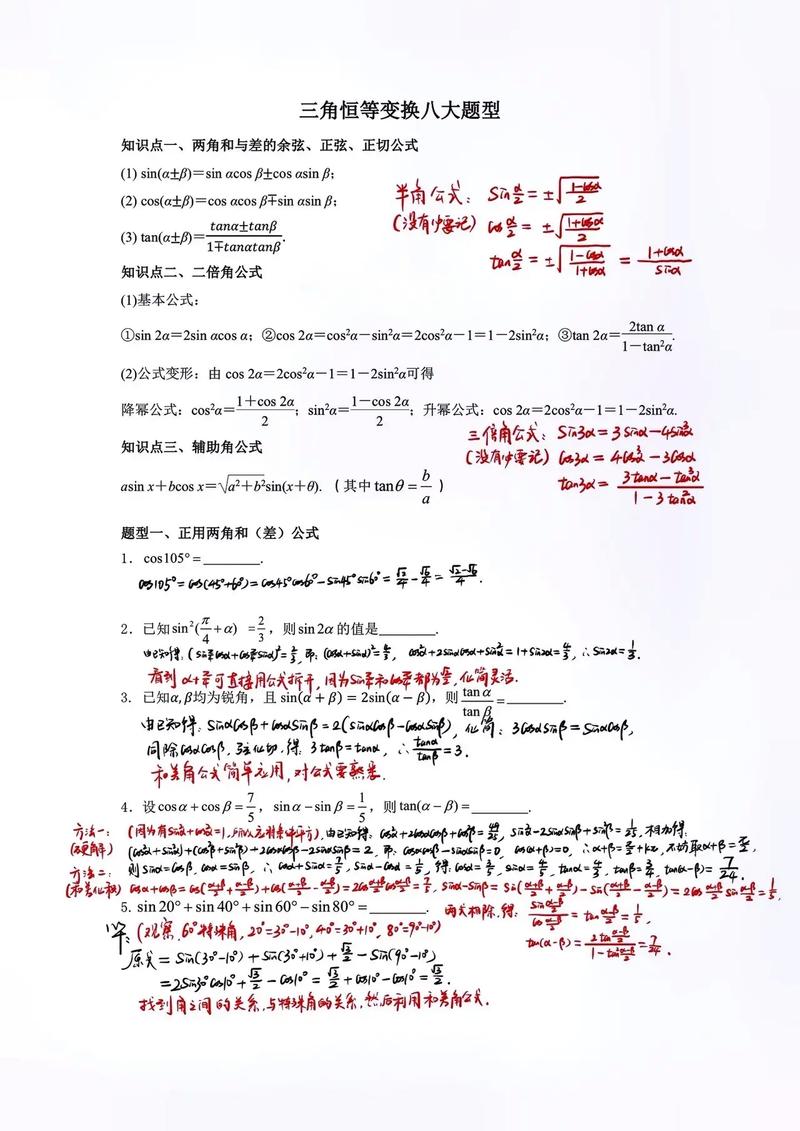 三角恒等变换八大题型
知识点一、两角和与差的余弦、正弦、正切公式
(1) sin(α±β)=sin αcos β±cos αsin β;
(2) cos(α±β)=cos αcos β∓sin αsin β;
(3) tan(α±β)=(tanα±tanβ)/(1∓tanαtanβ).
半角公式: sin α/2 = ±√((1-cosα)/2)
(没有必要记) cos α/2 = ±√((1+cosα)/2)
tan α/2 = ±√((1-cosα)/(1+cosα)) = (1+cosα)/sinα
知识点二、二倍角公式
(1)基本公式:
①sin 2α=2sin αcos α; ②cos 2α=cos²α-sin²α=2cos²α-1=1-2sin²α; ③tan 2α=2tan α/(1-tan²α).
(2)公式变形: 由 cos 2α=2cos²α-1=1-2sin²α可得
降幂公式: cos²α=(1+cos 2α)/2; sin²α=(1-cos 2α)/2; 升幂公式: cos 2α=2cos²α-1=1-2sin²α.
知识点三、辅助角公式
三倍角公式: sin3α = 3sinα-4sin³α
(没有必要记) cos3α = 4cos³α-3cosα
tan3α = (3tanα-tan³α)/(1-3tan²α)
asin x+bcos x=√(a²+b²)sin(x+θ). (其中 tanθ = b/a)
题型一、正用两角和(差)公式
1. cos105°=________.
cos105°=cos(45°+60°)=cos45°cos60°-sin45°sin60°=√2/4-√6/4=(√2-√6)/4.
2. 已知 sin²(π/4+α) =2/3, 则 sin2α 的值是________.
由已知得: (sinπ/4cosα+cosπ/4sinα)²=2/3, 即: (cosα+sinα)²=4/3, cos²α+2sinαcosα+sin²α=1+sin2α=4/3, ∴sin2α=1/3.
看到α+π/4可直接用公式拆开, 因为sinπ/4和cosπ/4都为√2/2, 化简灵活.
3. 已知α,β均为锐角, 且 sin(α+β)=2sin(α-β), 则 tanα/tanβ=________.
由已知得: sinαcosβ+cosαsinβ=2(sinαcosβ-cosαsinβ), 化简: 3cosαsinβ=sinαcosβ,
同除cosαcosβ, 弦化切, 得: 3tanβ=tanα, ∴tanα/tanβ=3.
和差角公式简单应用, 对公式要熟悉.
4. 设 cosα+cosβ=7/5, sinα-sinβ=1/5, 则 tan(α-β)=________.
方法一: (因为有sin²α+cos²α=1, 所以先对条件平方), 由已知得: cos²α+2cosαcosβ+cos²β=49/25, sin²α-2sinαsinβ+sin²β=1/25, 相加得:
(硬解) (cos²α+sin²α)+(cos²β+sin²β)+2cosαcosβ-2sinαsinβ=2, 即: cosαcosβ-sinαsinβ=0, cos(α+β)=0, ∴α+β=π/2+kπ, 不妨取α+β=π/2,
则 sinα=cosβ, cosα=sinβ, ∴cosα+sinα=7/5, sinα-cosα=1/5, 得: cosα=3/5, sinα=4/5, tanα=4/3, tanβ=3/4, tan(α-β)=7/24.
方法二:
(和差化积) cosα+cosβ=cos((α+β)/2+(α-β)/2)+cos((α+β)/2-(α-β)/2)=2cos(α+β)/2cos(α-β)/2=7/5, sinα-sinβ=sin((α+β)/2+(α-β)/2)-sin((α+β)/2-(α-β)/2)=2cos(α+β)/2sin(α-β)/2=1/5,
两式相除, 得: sin(α-β)/2 / cos(α-β)/2 = tan(α-β)/2=1/7,
tan(α-β)=2tan(α-β)/2 / (1-tan²(α-β)/2)=7/24.
5. sin20°+sin40°+sin60°-sin80°=________.
解: (观察, 60°特殊角, 20°=30°-10°, 40°=30°+10°, 80°=90°-10°)
原式=sin(30°-10°)+sin(30°+10°)+√3/2-sin(90°-10°)
=2sin30°cos10°+√3/2-cos10°=√3/2+cos10°-cos10°=√3/2.
找到角之间的关系, 与特殊角的关系, 然后利用和差角公式.